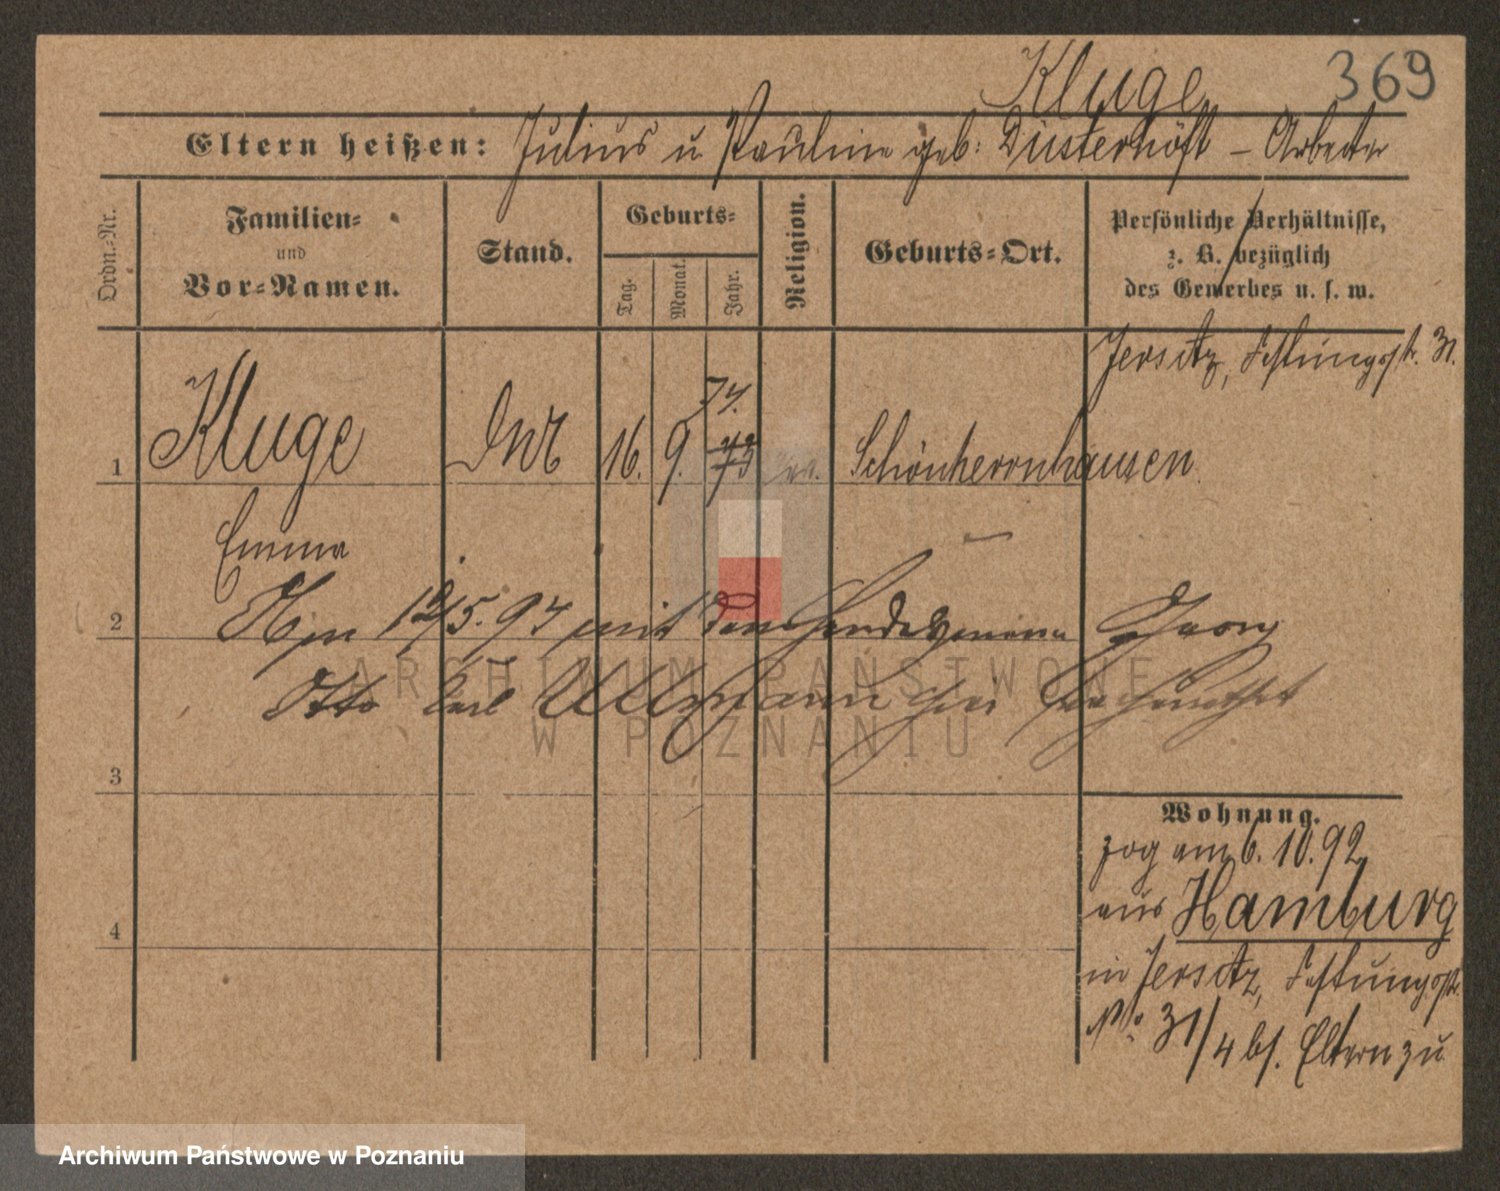 Kluge
369
Eltern heißen: Julius u Pauline geb: Düsterhöft – Arbeiter
Ordn.-Nr.
Familien- und Vor-Namen.
Stand.
Geburts-
Tag.
Monat.
Jahr.
Religion.
Geburts-Ort.
Persönliche Verhältnisse, z. B. bezüglich des Gewerbes u. s. w.
Jersitz, Festungsstr. 31.
74.
1 Kluge 16. 9. 73 ev. Schönherrnhausen
Emma
2 12/5. 94 mit dem Georg
Otto Karl
ARCHIWUM PAŃSTWOWE
W POZNANIU
3
Wohnung.
zog am 6. 10. 92
aus Hamburg
4
in Jersitz, Festungsstr.
No 31/4 bs. Eltern zu
Archiwum Państwowe w Poznaniu